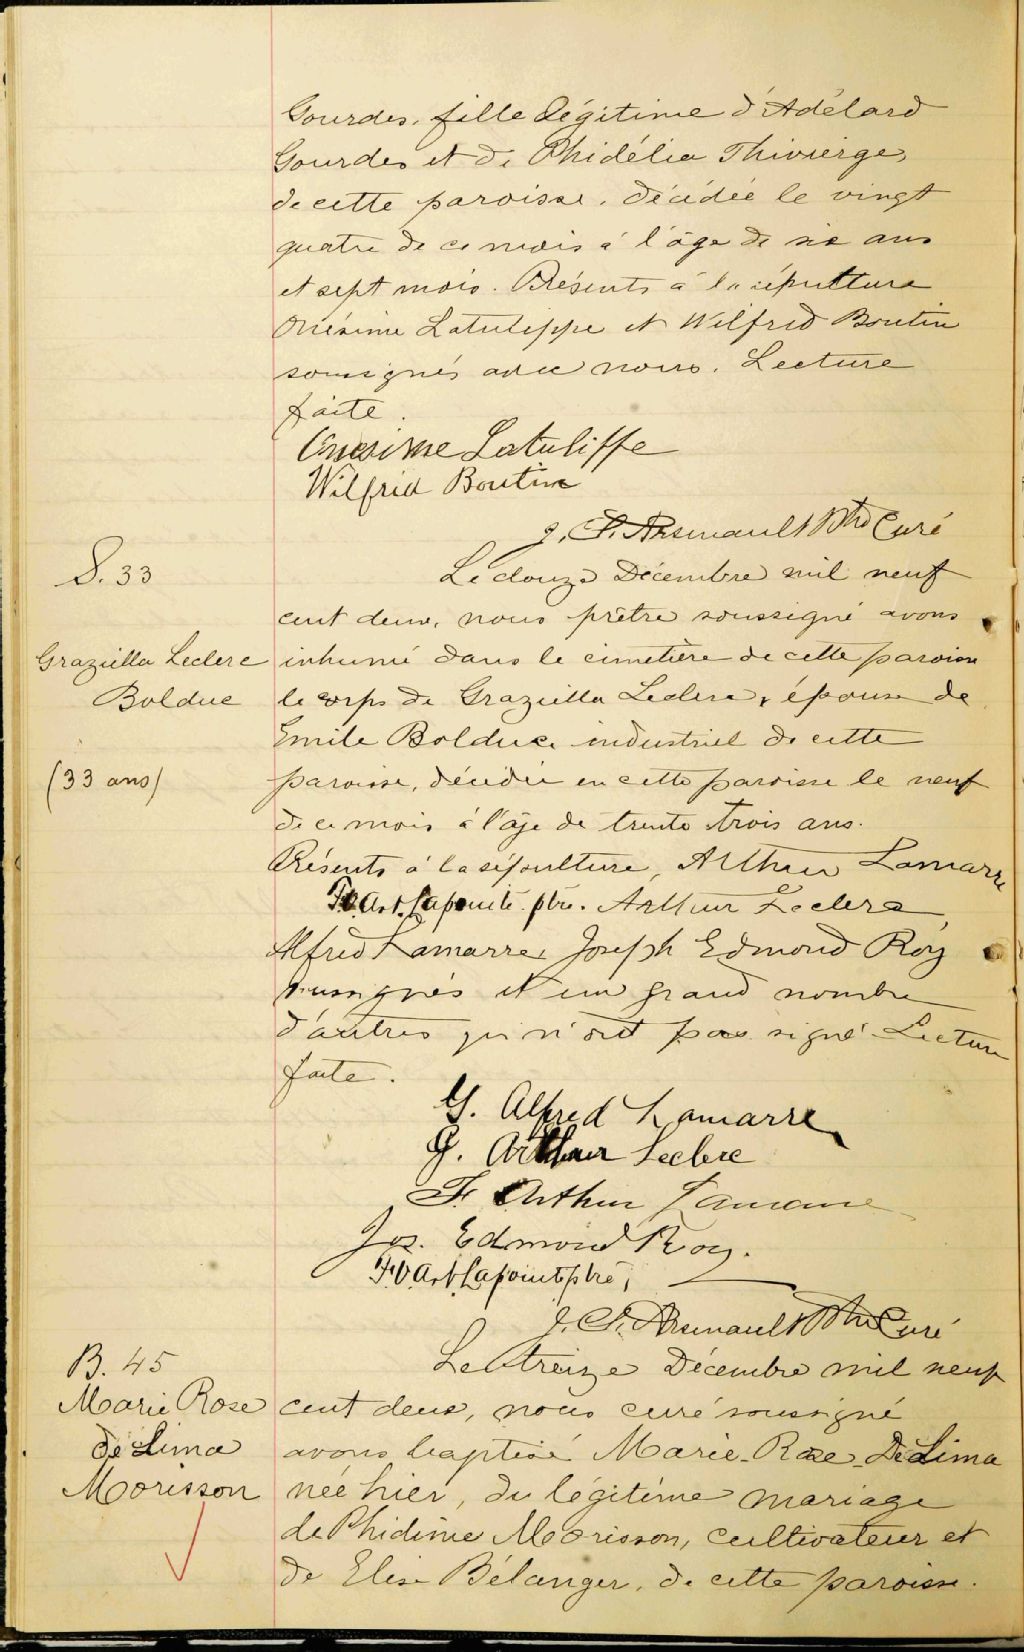 Gourdes, fille légitime d'Adélard
Gourdes et de Phidélia Thivierge,
de cette paroisse, décédée le vingt
quatre de ce mois à l'âge de six ans
et sept mois. Présents à la sépulture
Onésime Latulippe et Wilfred Boutin
soussignés avec nous. Lecture
faite.
Onesime Latuliffe
Wilfrid Boutin
J. Arsenault Ptre Curé
S. 33
Le douze Décembre mil neuf
cent deux, nous prêtre soussigné avons
Graziella Leclerc
Bolduc
inhumé dans le cimetière de cette paroisse
le corps de Graziella Leclerc, épouse de
Emile Bolduc, industriel de cette
(33 ans)
paroisse, décédée en cette paroisse le neuf
de ce mois à l'âge de trente trois ans.
Présents à la sépulture, Arthur Lamarre
Art. Lapointe ptre. Arthur Leclerc,
Alfred Lamarre, Joseph Edmond Roy
soussignés et un grand nombre
d'autres qui n'ont pas signé. Lecture
faite.
G. Alfred Lamarre
G. Arthur Leclerc
F. Arthur Lamarre
Jos. Edmond Roy.
Art Lapointe ptre,
J. Arsenault Ptre Curé
B. 45
Marie Rose
de Lima
Morisson
Le treize Décembre mil neuf
cent deux, nous curé soussigné
avons baptisé Marie-Rose-De Lima
née hier, du légitime mariage
de Phidime Morisson, cultivateur et
de Elise Bélanger, de cette paroisse.